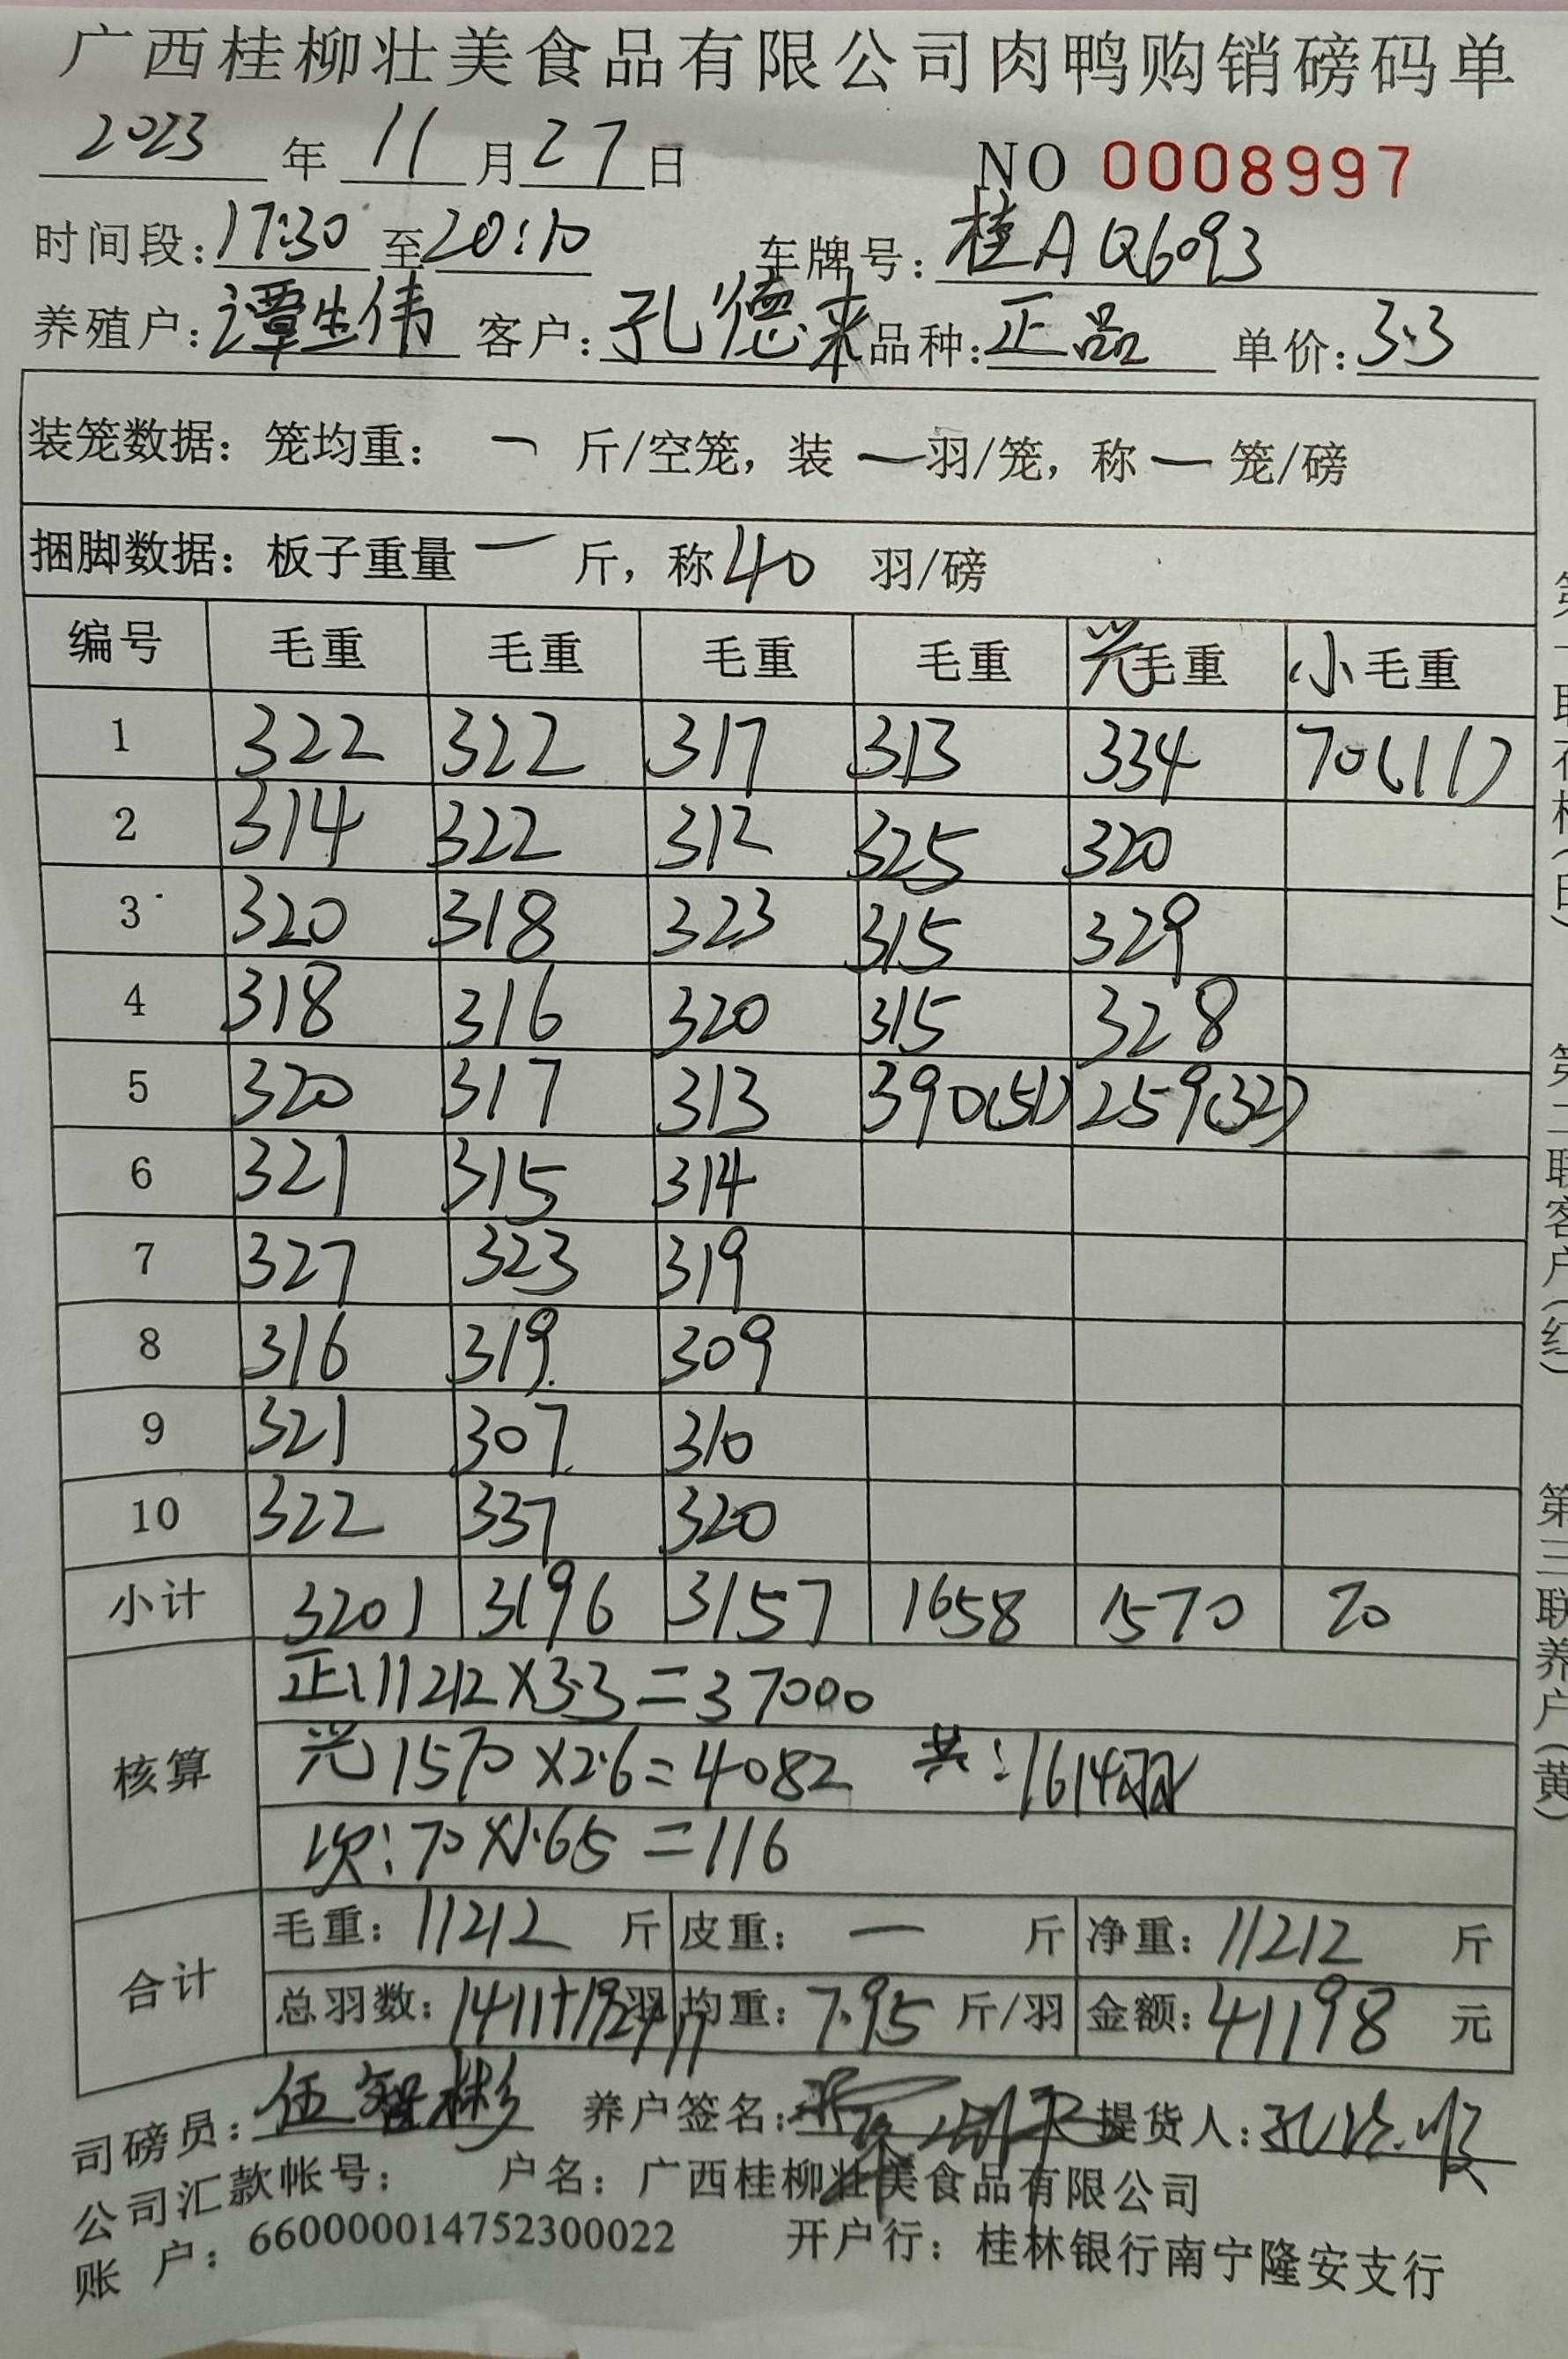 广西桂柳壮美食品有限公司肉鸭购销磅码单
2023 年 11 月 27 日 NO 0008997
时间段: 17:30 至 20:10 车牌号: 桂A Q6093
养殖户: 谭生伟 客户: 孔德来 品种: 正品 单价: 3.3
装笼数据: 笼均重: 一 斤/空笼, 装 一 羽/笼, 称 一 笼/磅
捆脚数据: 板子重量 一 斤, 称 40 羽/磅
编号 毛重 毛重 毛重 毛重 光毛重 小毛重
1 322 322 317 313 334 70(11)
2 314 322 312 325 320
3 320 318 323 315 329
4 318 316 320 315 328
5 320 317 313 390(51) 259(32)
6 321 315 314
7 327 323 319
8 316 319 309
9 321 307 310
10 322 337 320
小计 3201 3196 3157 1658 1570 70
核算
正:11212×3.3=37000
光1570×2.6=4082 共:1614羽
次:70×1.65=116
合计
毛重: 11212 斤 皮重: 一 斤 净重: 11212 斤
总羽数: 1411+192+11 羽 均重: 7.95 斤/羽 金额: 41198 元
司磅员: 伍智彬 养户签名: 提货人:
公司汇款帐号: 户名: 广西桂柳壮美食品有限公司
账 户: 660000014752300022 开户行: 桂林银行南宁隆安支行
第二联客户(红)
第三联养户(黄)